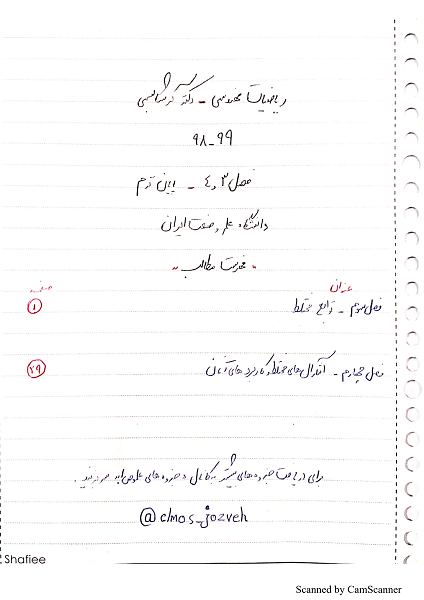 ریاضیات مهندسی - دکتر
۹۸-۹۹
فصل ۳ و ۴ - پایان ترم
دانشگاه علم و صنعت ایران
"فهرست مطالب"
عنوان صفحه
فصل سوم - توابع مختلط ۱
فصل چهارم - انتگرال‌های مختلط و کاربردهای آنان ۲۹
برای دریافت جزوه‌های بیشتر به کانال جزوه‌های علم و صنعت
@elmos_jozveh
Shafiee
Scanned by CamScanner